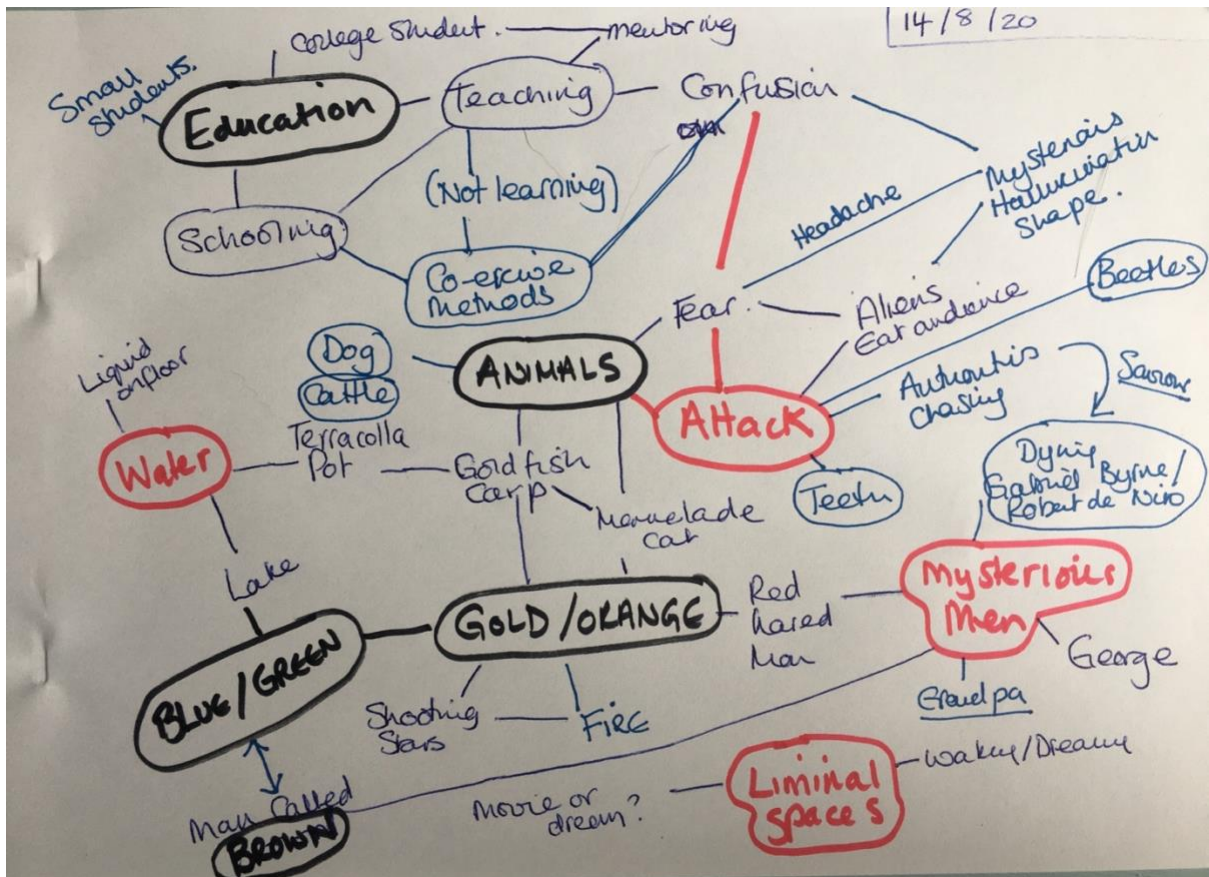 14/8/20
College Student.
mentoring
Small
Students.
Education
Teaching
Confusion
(Not learning)
Schooling
Co-ercive
methods
Headache
Mysterious
Hallucination
Shape.
Beetles
Fear.
Aliens
Eat audience
Liquid
on floor
Dog
Cattle
ANIMALS
Attack
chasing
Sorrow
Water
Terracolla
Pot
Goldfish
Carp
Marmelade
Cat
Teeth
Dying
Gabriel Byrne/
Robert de Niro
Lake
GOLD/ORANGE
Red
hared
Man
Mysterious
Men
George
Grandpa
BLUE/GREEN
Shooting
Stars
FIRE
Man Called
BROWN
Movie or
dream?
Liminal
spaces
Waking/Dreaming